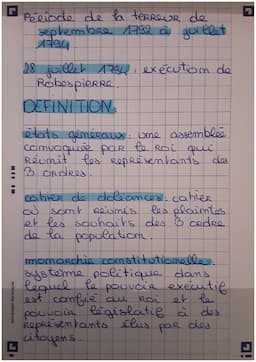 Période de la terreur de
septembre 1792 à juillet
1794
28 juillet 1794 : exécution de
Robespierre.
DEFINITION
états généraux : une assemblée
convoquée par le roi qui
réunit les représentants des
3 ordres.
cahier de doléances : cahier
où sont réunis les plaintes
et les souhaits des 3 ordre
de la population.
monarchie constitutionelle
système politique dans
lequel le pouvoir exécutif
est confié au roi et le
pouvoir législatif à des
représentants élus par des
citoyens.